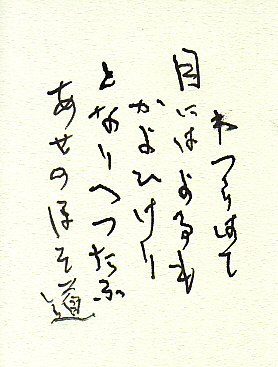 わつらはて
月にはよるも
かよひけり
となりへつたふ
あせのほそ道